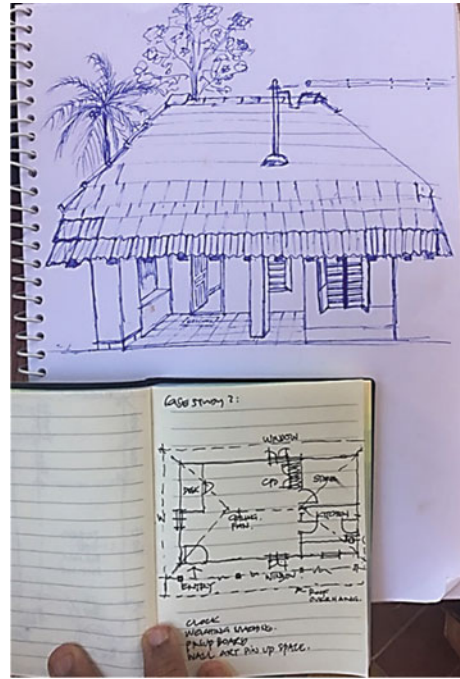 CASE STUDY 2:
WINDOW
DESK
CPD
STORE
CEILING
FAN.
KITCHEN
ENTRY
WINDOW
ROOF
OVERHANG.
CLOCK
WEIGHING MACHINE.
PINUP BOARD
WALL ART PIN UP SPACE.